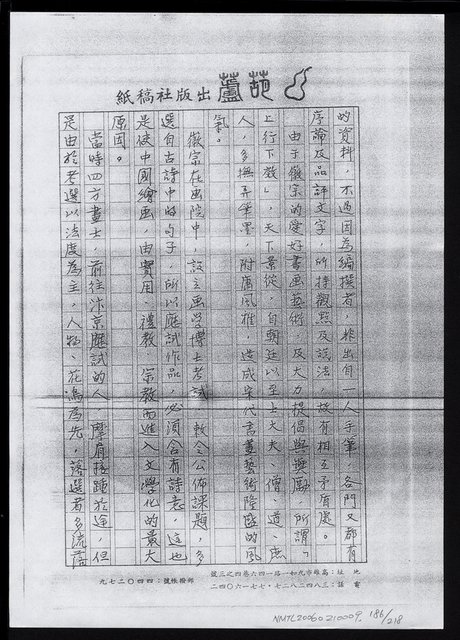 葫蘆出版社稿紙
的資料，不過因為編撰者，非出自一人手筆，各門又都有
序論及品評文字，所持觀點及說法，故有相互矛盾處。
由于徽宗的愛好書画藝術，及大力提倡與獎勵，所謂「
上行下教」，天下景從，自朝廷以至士大夫、僧、道、庶
人，多撫弄筆墨，附庸風雅，造成宋代書畫藝術隆盛的風
氣。
徽宗在画院中，設立画学博士考試，敕令公佈課題，多
選自古詩中的句子，所以應試作品，必須含有詩意，這也
是使中國繪画，由實用、禮教、宗教而進入文學化的最大
原因。
當時四方畫士，前往汴京應試的人，摩肩接踵於途，但
是由於考選以法度為主，人物、花鳥為先，落選者多流落
地址：高雄市九如一路一四六巷四之三號
電話：三八四二八二七・七七一六〇四二
郵撥帳號：四四〇二七九
NMTL20060210009. 186/218